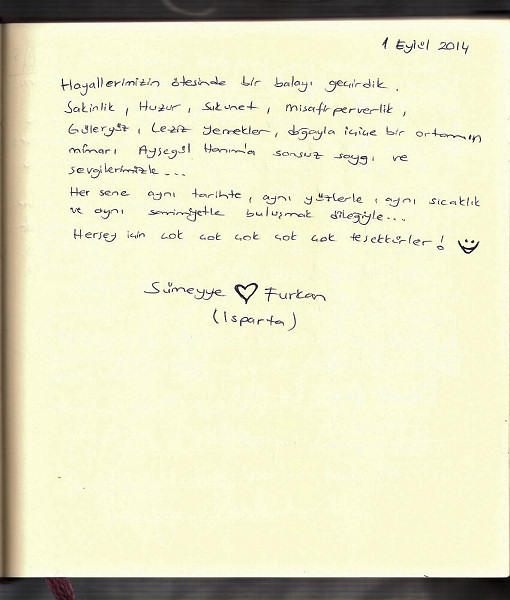 1 Eylül 2014
Hayallerimizin ötesinde bir balayı geçirdik.
Sakinlik, Huzur, Sükunet, misafirperverlik,
Güleryüz, Leziz yemekler, doğayla içiçe bir ortamın
mimarı Ayşegül Hanım'a sonsuz saygı ve
sevgilerimizle...
Her sene aynı tarihte, aynı yüzlerle, aynı sıcaklık
ve aynı samimiyetle buluşmak dileğiyle...
Herşey için çok çok çok çok çok teşekkürler!
Sümeyye ♡ Furkan
(Isparta)